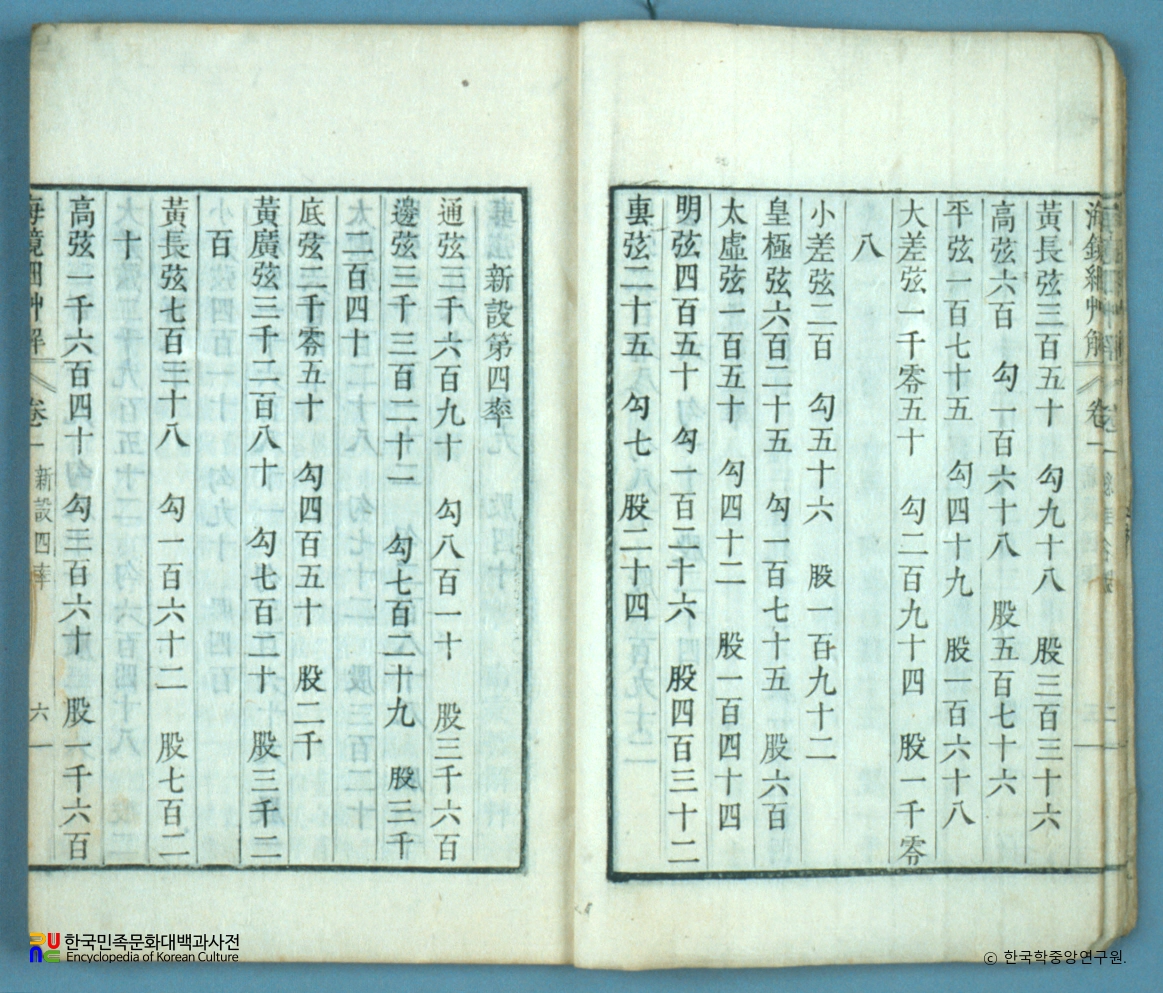 海鏡細艸解 卷一
黃長弦三百五十 勾九十八 股三百三十六
高弦六百 勾一百六十八 股五百七十六
平弦一百七十五 勾四十九 股一百六十八
大差弦一千零五十 勾二百九十四 股一千零
八
小差弦二百 勾五十六 股一百九十二
皇極弦六百二十五 勾一百七十五 股六百
太虛弦一百五十 勾四十二 股一百四十四
明弦四百五十 勾一百二十六 股四百三十二
叀弦二十五 勾七 股二十四
新設第四率
通弦三千六百九十 勾八百一十 股三千六百
邊弦三千三百二十一 勾七百二十九 股三千
二百四十
底弦二千零五十 勾四百五十 股二千
黃廣弦三千二百八十 勾七百二十 股三千二
百
黃長弦七百三十八 勾一百六十二 股七百二
十
高弦一千六百四十 勾三百六十 股一千六百
海鏡細艸解 卷一 新設四率 六一
한국민족문화대백과사전
Encyclopedia of Korean Culture
© 한국학중앙연구원.